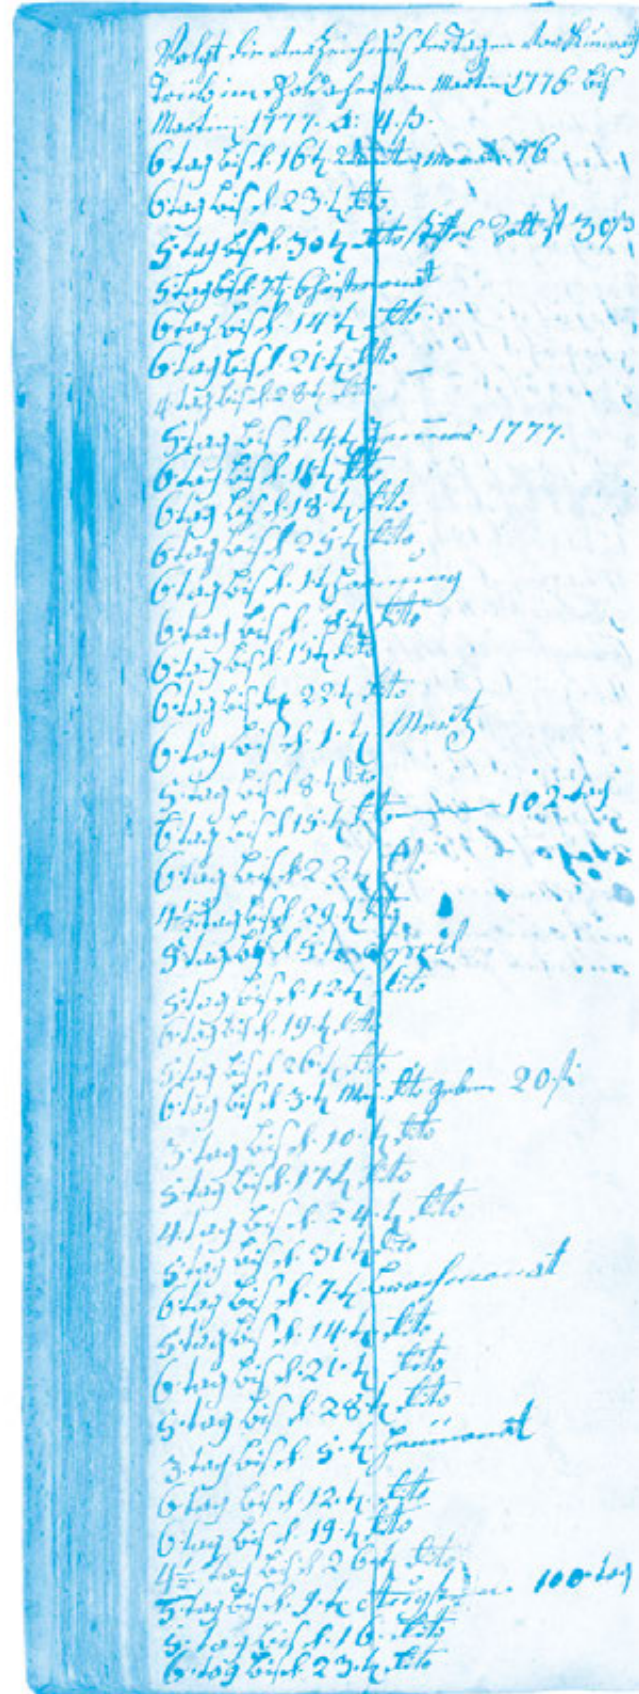 Volgt die Verzeichnus der Tagen
im von Martini 1776 bis
Martini 1777. 4 ß.
6 tag bis d. 16t 76
6 tag bis d. 23t dito
5 tag bis d. 30t dito 30 ß
5 tag bis d. 7t Christmonat
6 tag bis d. 14t dito
6 tag bis d. 21t dito
4 tag bis d. 28t dito
5 tag bis d. 4t 1777.
6 tag bis d. 11t dito
6 tag bis d. 18t dito
6 tag bis d. 25t dito
6 tag bis d. 1t Hornung
6 tag bis d. 8t dito
6 tag bis d. 15t dito
6 tag bis den 22t dito
6 tag bis d. 1t Mertz
5 tag bis d. 8t dito
6 tag bis d. 15t dito 102 tag
6 tag bis d. 22t dito
4½ tag bis d. 29t dito
5 tag bis d. 5t April
5 tag bis d. 12t dito
6 tag bis d. 19t dito
5 tag bis d. 26t dito
6 tag bis d. 3t May dito geben 20 ß
3 tag bis d. 10t dito
5 tag bis d. 17t dito
4 tag bis d. 24t dito
5 tag bis d. 31t dito
6 tag bis d. 7t Brachmonat
5 tag bis d. 14t dito
6 tag bis d. 21t dito
5 tag bis d. 28t dito
3 tag bis d. 5t Heümonat
6 tag bis d. 12t dito
6 tag bis d. 19t dito
4½ tag bis d. 26t dito
5 tag bis d. 9t 100 tag
5 tag bis d. 16 dito
6 tag bis d. 23t dito